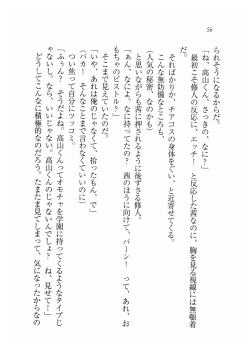 56
られそうになるからだ。
「ね、高山くん、さっきの、なに？」
最初こそ修人の反応に、エッチ！　と反応した茜なのに、胸を見る視線には無頓着
だ。
そればかりか、チアコスの身体をぐい、と近寄せてくる。
こんな無防備なところも、
（人気の秘密、なのかも）
と思いながらも茜に押されるように後ずさる修人。
「あ、なによ、なに持ってたの？　茜のほうに向けて、バーン！　って、あれ、お
もちゃのピストル？」
そこまで見えていたのだ。
「いや、あれは俺のじゃなくて、拾ったもん、で」
（バカ！　そんなことまで言わなくていいのに）
つい焦って自分にツッコミ。
「ふうん？　そうだよね。高山くんってオモチャを学園に持ってくるようなタイプじ
ゃないし。なら、いいじゃない。高山くんのじゃないんでしょ？　ね、見せて！」
どうしてこんなに積極的なのだろう。たまたま見てしまって、気になったからなの